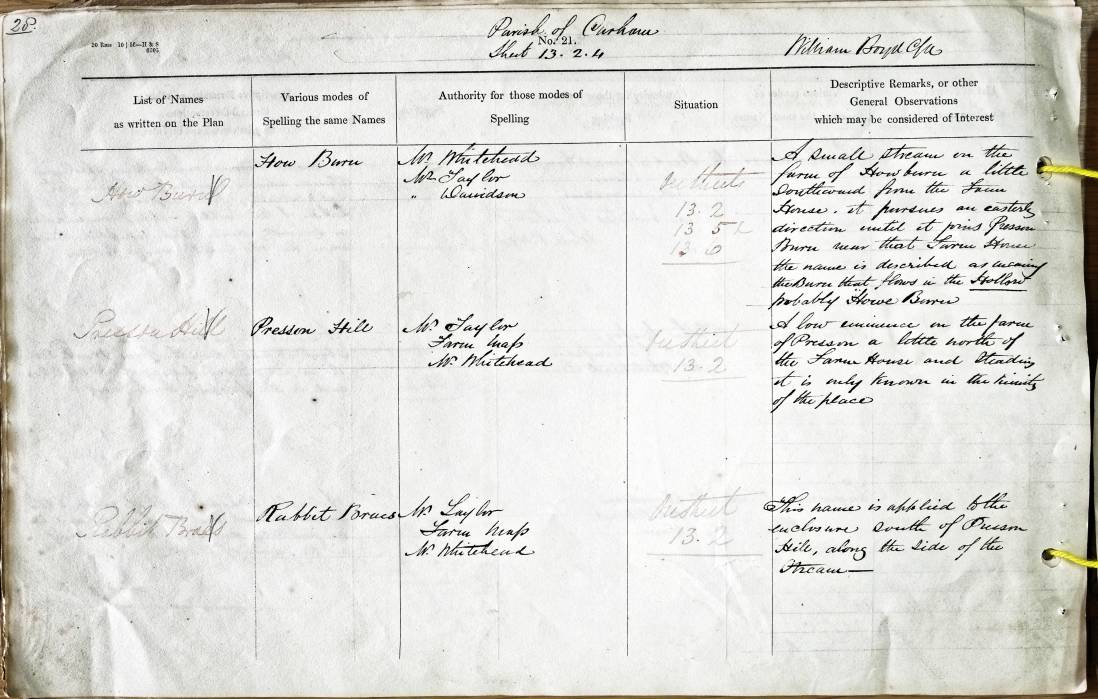 28.
20 Rms 10 | 56—H & S
6205
Parish of Carham
No. 21.
Sheet 13.2.4
William Boyd C/A
List of Names
as written on the Plan
Various modes of
Spelling the same Names
Authority for those modes of
Spelling
Situation
Descriptive Remarks, or other
General Observations
which may be considered of Interest
How Burn
How Burn
Mr. Whitehead
Mr. Taylor
" Davidson
On Sheets
13.2
13.5
13.6
A small stream on the
farm of Howburn a little
Southward from the Farm
House. it pursues an easterly
direction until it joins Presson
Burn near that Farm House
the name is described as meaning
the Burn that flows in the Hollow
probably "Howe Burn
Presson Hill
Presson Hill
Mr. Taylor
Farm Map
Mr. Whitehead
On Sheet
13.2
A low eminence on the farm
of Presson a little north of
the Farm House and Steading
it is only known in the vicinity
of the place
Rabbit Braes
Rabbit Braes
Mr. Taylor
Farm Map
Mr. Whitehead
On Sheet
13.2
This name is applied to the
enclosure south of Presson
Hill, along the side of the
Stream—